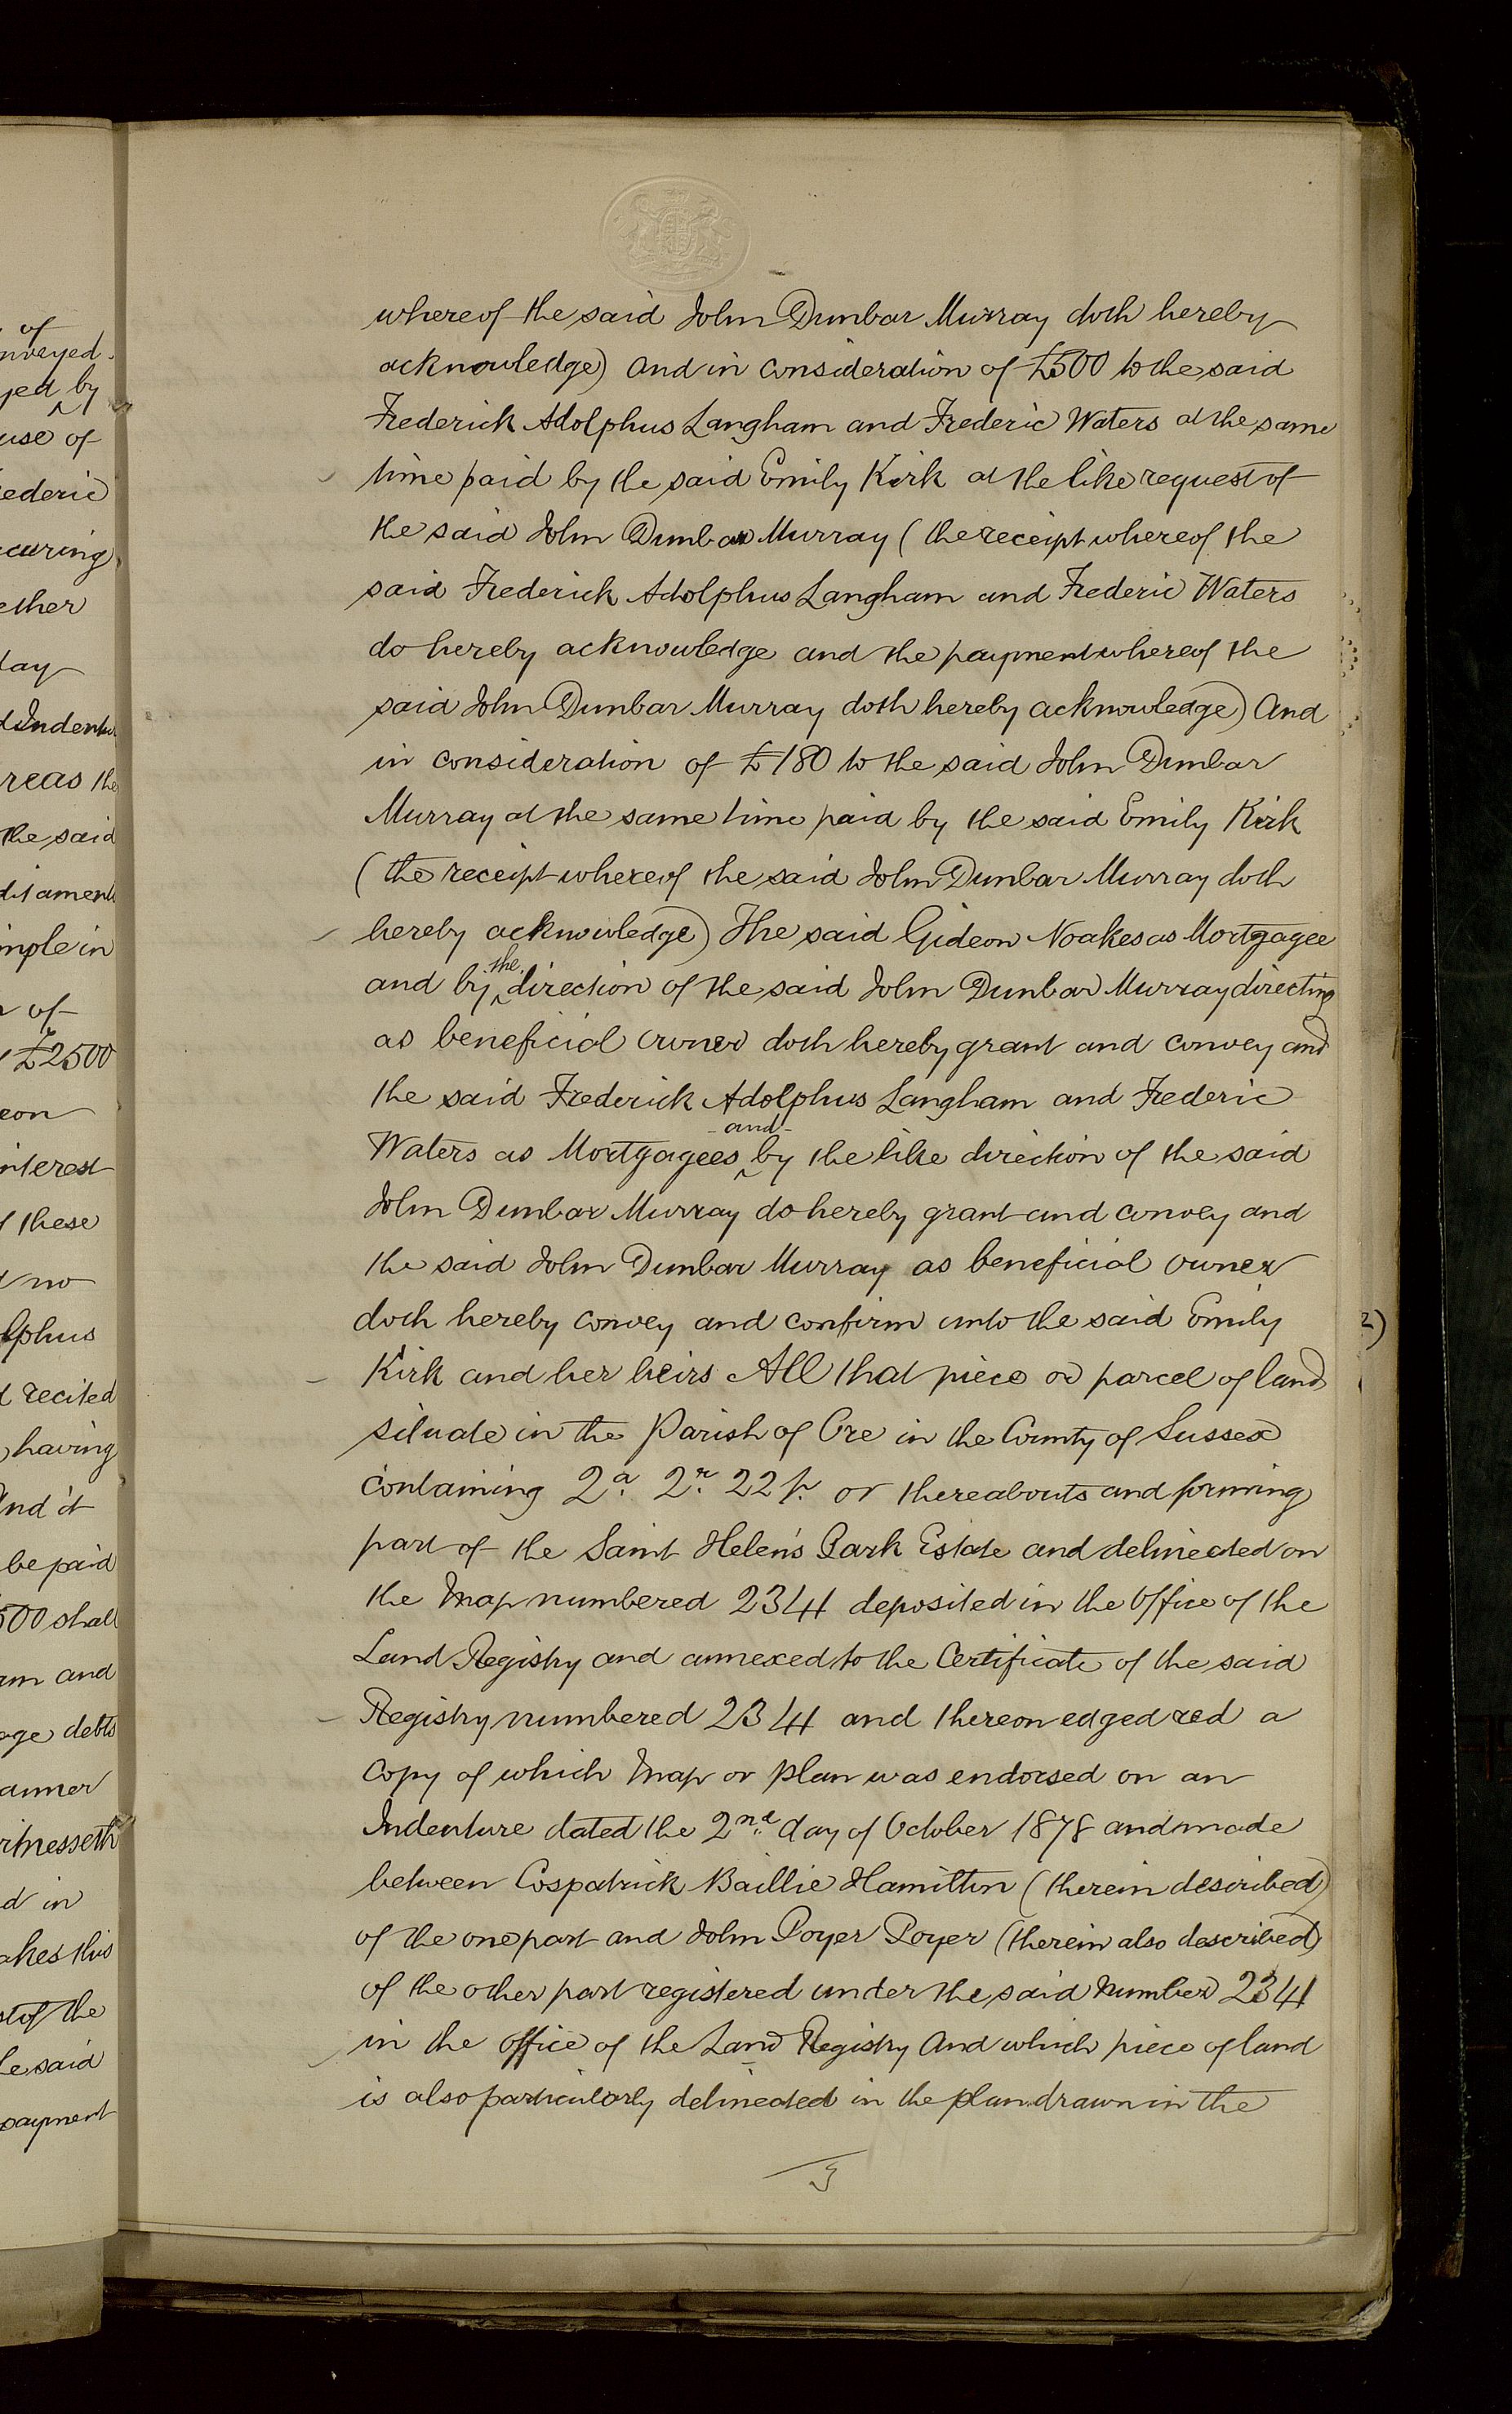 of
nveyed.
yed by
use of
ederic
curing
ether
day
Indentur
reas the
the said
ditaments
imple in
of
£2500
eon
nterest
these
no
lphus
recited
having
And it
be paid
500 shall
and
age debts
anner
itnesseth
d in
akes this
st of the
he said
payment
whereof the said John Dunbar Murray doth hereby
acknowledge) And in consideration of £500 to the said
Frederick Adolphus Langham and Frederic Waters at the same
time paid by the said Emily Kirk at the like request of
the said John Dunbar Murray (the receipt whereof the
said Frederick Adolphus Langham and Frederic Waters
do hereby acknowledge and the payment whereof the
said John Dunbar Murray doth hereby acknowledge) And
in consideration of £180 to the said John Dunbar
Murray at the same time paid by the said Emily Kirk
(the receipt whereof the said John Dunbar Murray doth
hereby acknowledge) The said Gideon Noakes as Mortgagee
and by the direction of the said John Dunbar Murray directing
as beneficial owner doth hereby grant and convey and
the said Frederick Adolphus Langham and Frederic
Waters as Mortgagees and by the like direction of the said
John Dunbar Murray do hereby grant and convey and
the said John Dunbar Murray as beneficial owner
doth hereby convey and confirm unto the said Emily
Kirk and her heirs All that piece or parcel of land
situate in the Parish of Ore in the County of Sussex
containing 2a. 2r. 22p. or thereabouts and forming
part of the Saint Helen's Park Estate and delineated on
the Map numbered 2344 deposited in the Office of the
Land Registry and annexed to the Certificate of the said
Registry numbered 2344 and thereon edged red a
Copy of which Map or plan was endorsed on an
Indenture dated the 2nd day of October 1878 and made
between Cospatrick Baillie Hamilton (therein described)
of the one part and John Poyer Poyer (therein also described)
of the other part registered under the said Number 2344
in the Office of the Land Registry And which piece of land
is also particularly delineated in the plan drawn in the
3
2)